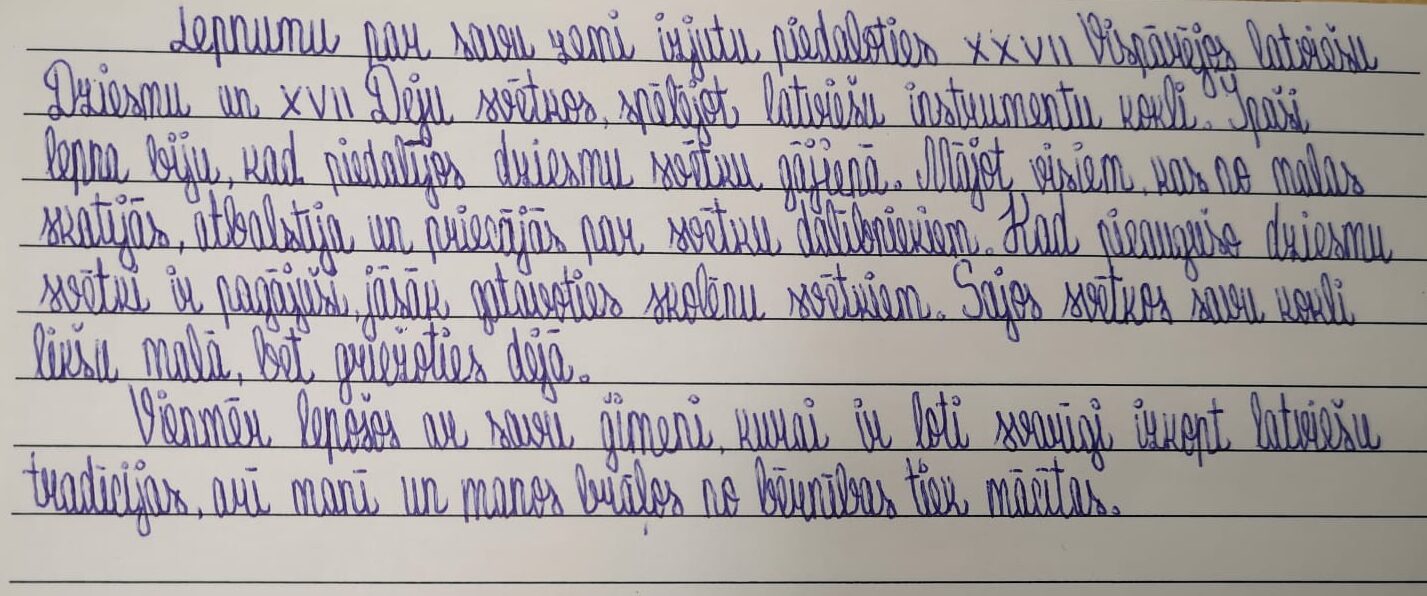 Lepnumu par savu zemi izjutu piedaloties XXVII Vispārējos latviešu
Dziesmu un XVII Deju svētkos, spēlējot latviešu instrumentu kokli. Īpaši
lepna biju, kad piedalījos dziesmu svētku gājienā. Mājot visiem, kas no malas
skatījās, atbalstīja un priecājās par svētku dalībniekiem. Kad pieaugušo dziesmu
svētki ir pagājuši, jāsāk gatavoties skolēnu svētkiem. Šajos svētkos savu kokli
likšu malā, bet griežoties dejā.
Vienmēr lepojos ar savu ģimeni, kurai ir ļoti svarīgi izkopt latviešu
tradīcijas, arī manī un manos brāļos no bērnības tiek mācītas.